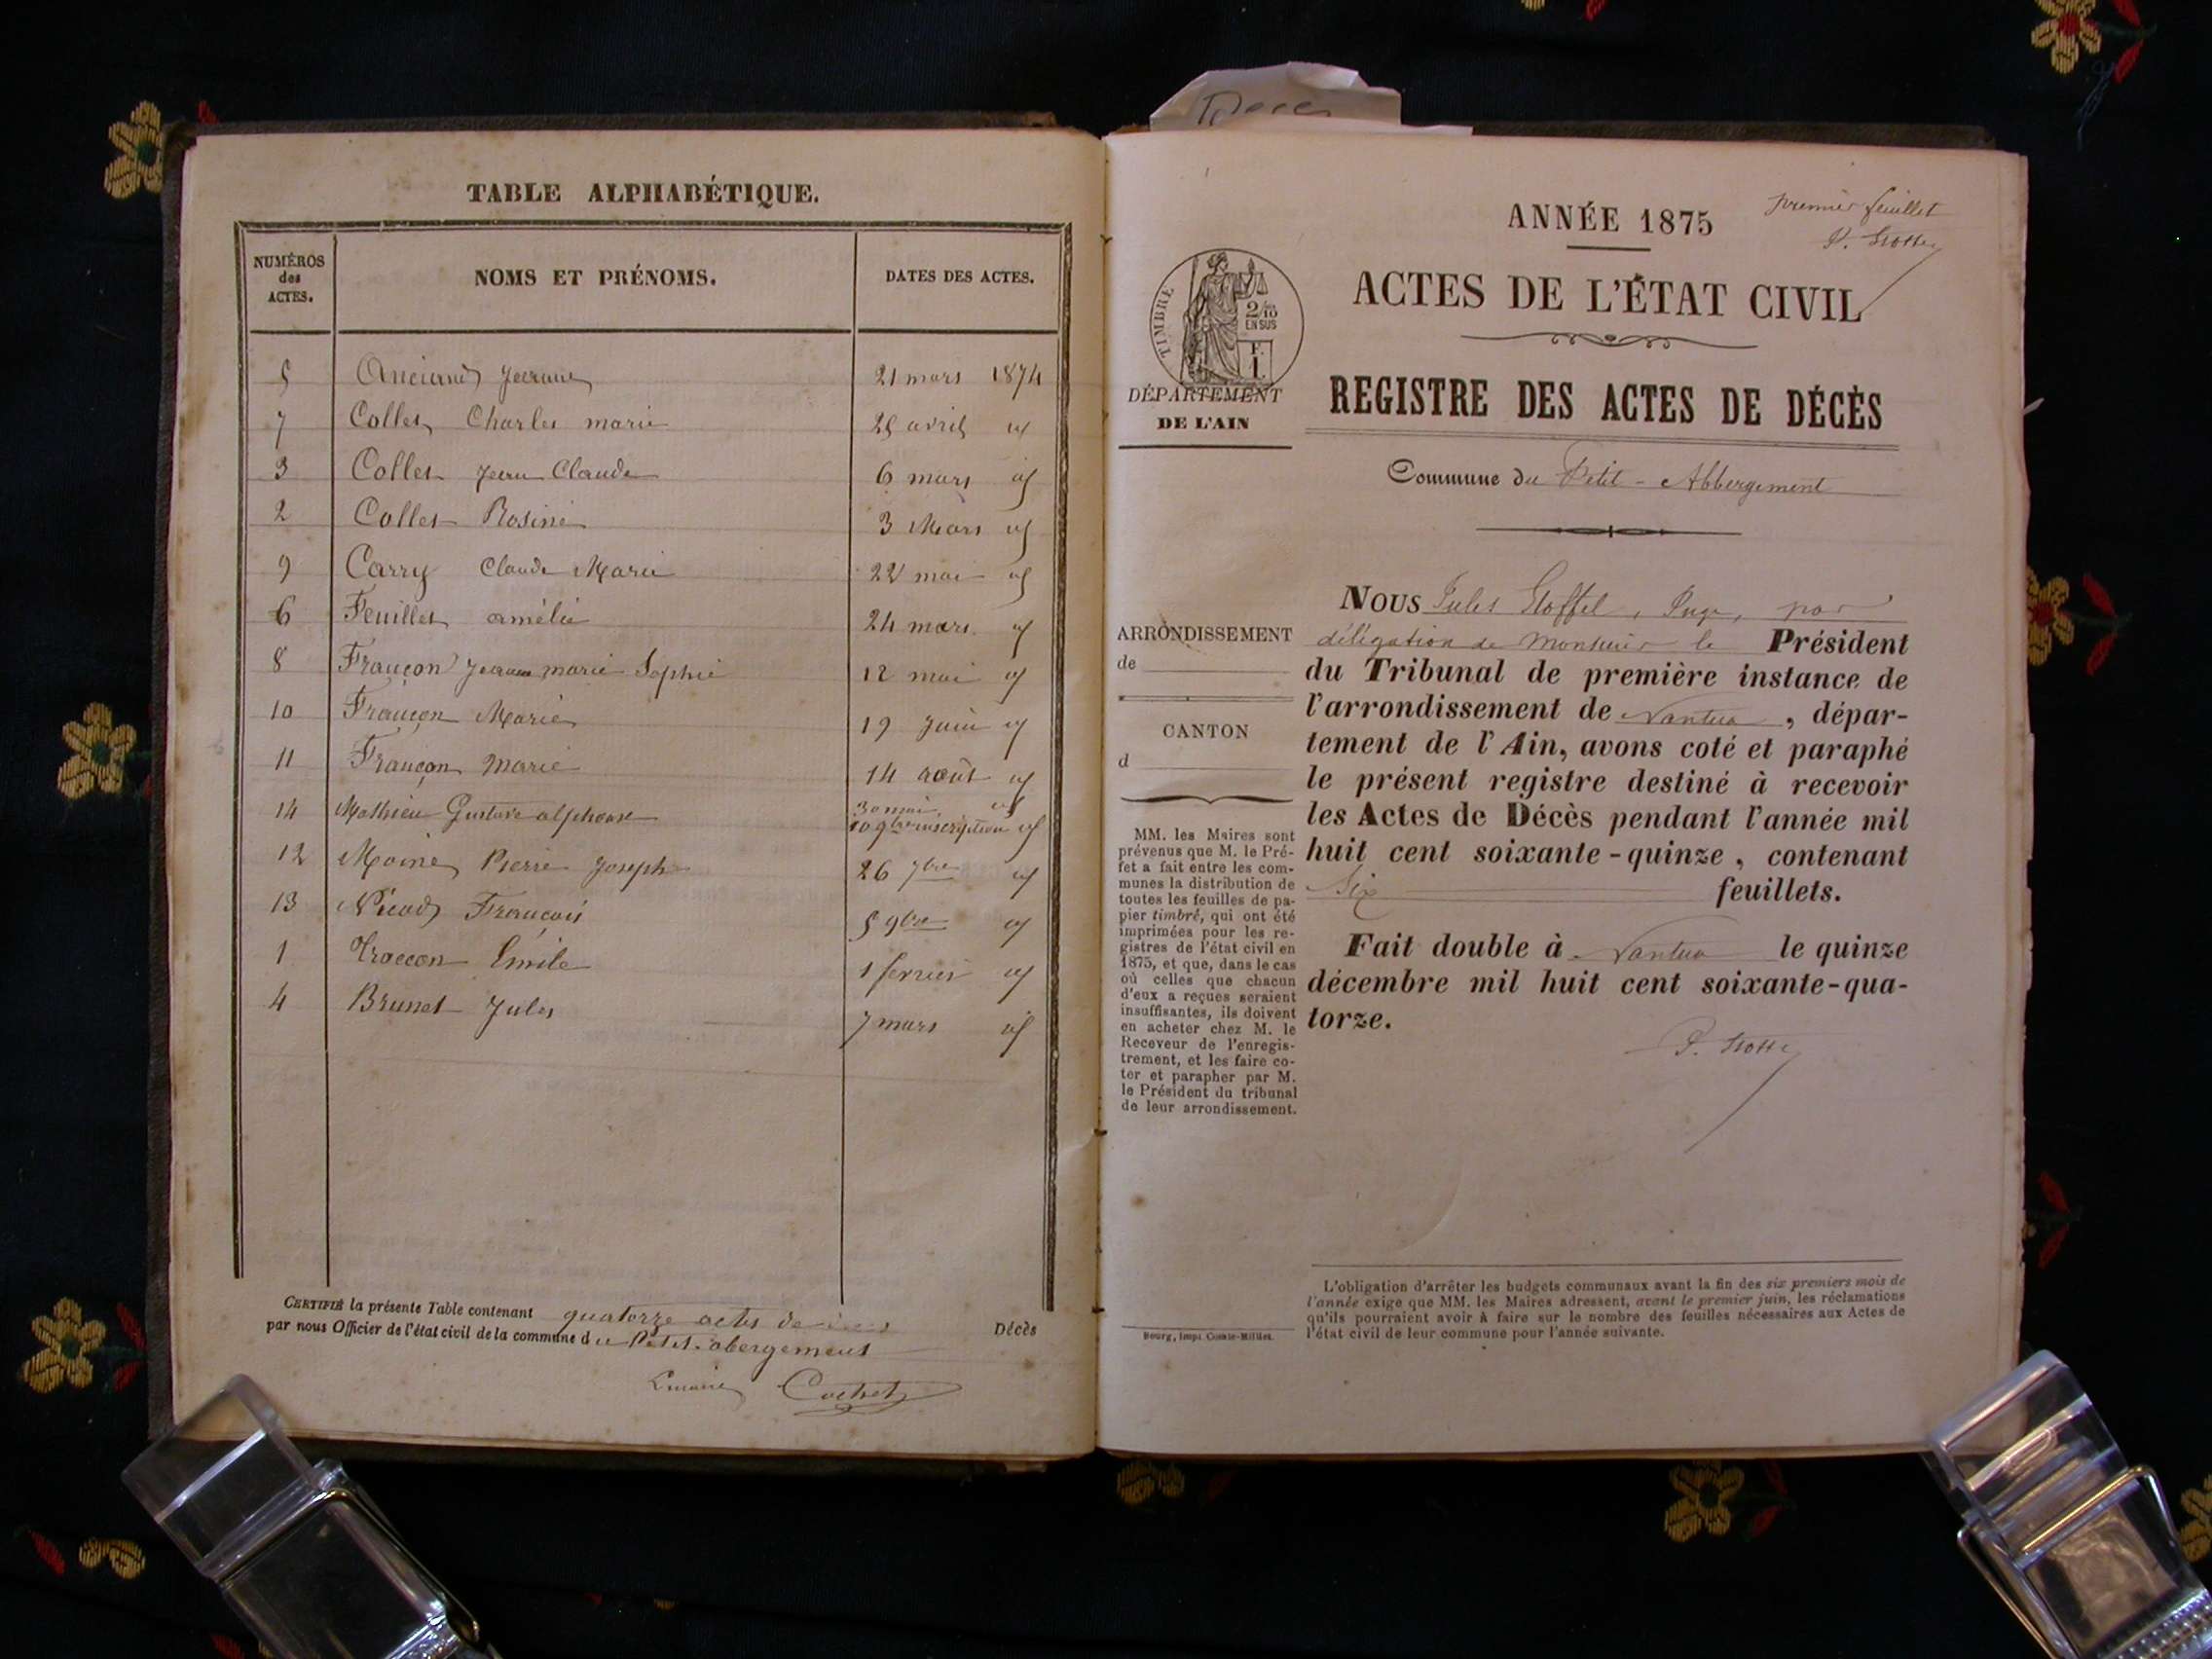 Décès
TABLE ALPHABÉTIQUE.
NUMÉROS des ACTES. NOMS ET PRÉNOMS. DATES DES ACTES.
5 Jeanne 21 mars 1874
7 Collet Charles marie 25 avril id
3 Collet Jean Claude 6 mars id
2 Collet Rosine 3 Mars id
9 Carry Claude Marie 22 mai id
6 Feuillet amélie 24 mars id
8 Françon Jeanne marie Sophie 12 mai id
10 Françon Marie 19 Juin id
11 Françon Marie 14 août id
14 Mathieu Gustave alphonse 30 mai id
10 9bre inscription id
12 Moine Pierre Joseph 26 7bre id
13 Nicod François 5 9bre id
1 Traccon Emile 1 fevrier id
4 Brunet Jules 7 mars id
CERTIFIÉ la présente Table contenant quatorze actes de Décès
par nous Officier de l'état civil de la commune du Petit-abergement
Le maire Cochet
premier feuillet
ANNÉE 1875
TIMBRE
2/10 EN SUS
F. 1.
ACTES DE L'ÉTAT CIVIL
DÉPARTEMENT
DE L'AIN
REGISTRE DES ACTES DE DÉCÈS
Commune du Petit-Abbergement
ARRONDISSEMENT
de
CANTON
d
MM. les Maires sont
prévenus que M. le Pré-
fet a fait entre les com-
munes la distribution de
toutes les feuilles de pa-
pier timbré, qui ont été
imprimées pour les re-
gistres de l'état civil en
1875, et que, dans le cas
où celles que chacun
d'eux a reçues seraient
insuffisantes, ils doivent
en acheter chez M. le
Receveur de l'enregis-
trement, et les faire co-
ter et parapher par M.
le Président du tribunal
de leur arrondissement.
Bourg, Impr. Comte-Milliet.
NOUS Jules Stoffel, Juge, par
délégation de Monsieur le Président
du Tribunal de première instance de
l'arrondissement de Nantua, dépar-
tement de l'Ain, avons coté et paraphé
le présent registre destiné à recevoir
les Actes de Décès pendant l'année mil
huit cent soixante-quinze, contenant
Six feuillets.
Fait double à Nantua le quinze
décembre mil huit cent soixante-qua-
torze.
L'obligation d'arrêter les budgets communaux avant la fin des six premiers mois de
l'année exige que MM. les Maires adressent, avant le premier juin, les réclamations
qu'ils pourraient avoir à faire sur le nombre des feuilles nécessaires aux Actes de
l'état civil de leur commune pour l'année suivante.